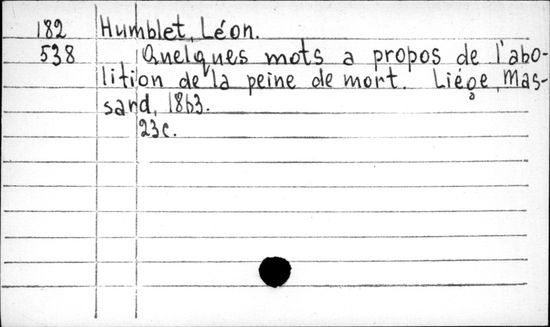 182 Humblet, Léon.
538 Quelques mots a propos de l'abo-
lition de la peine de mort. Liége, Mas-
sard, 1863.
23c.